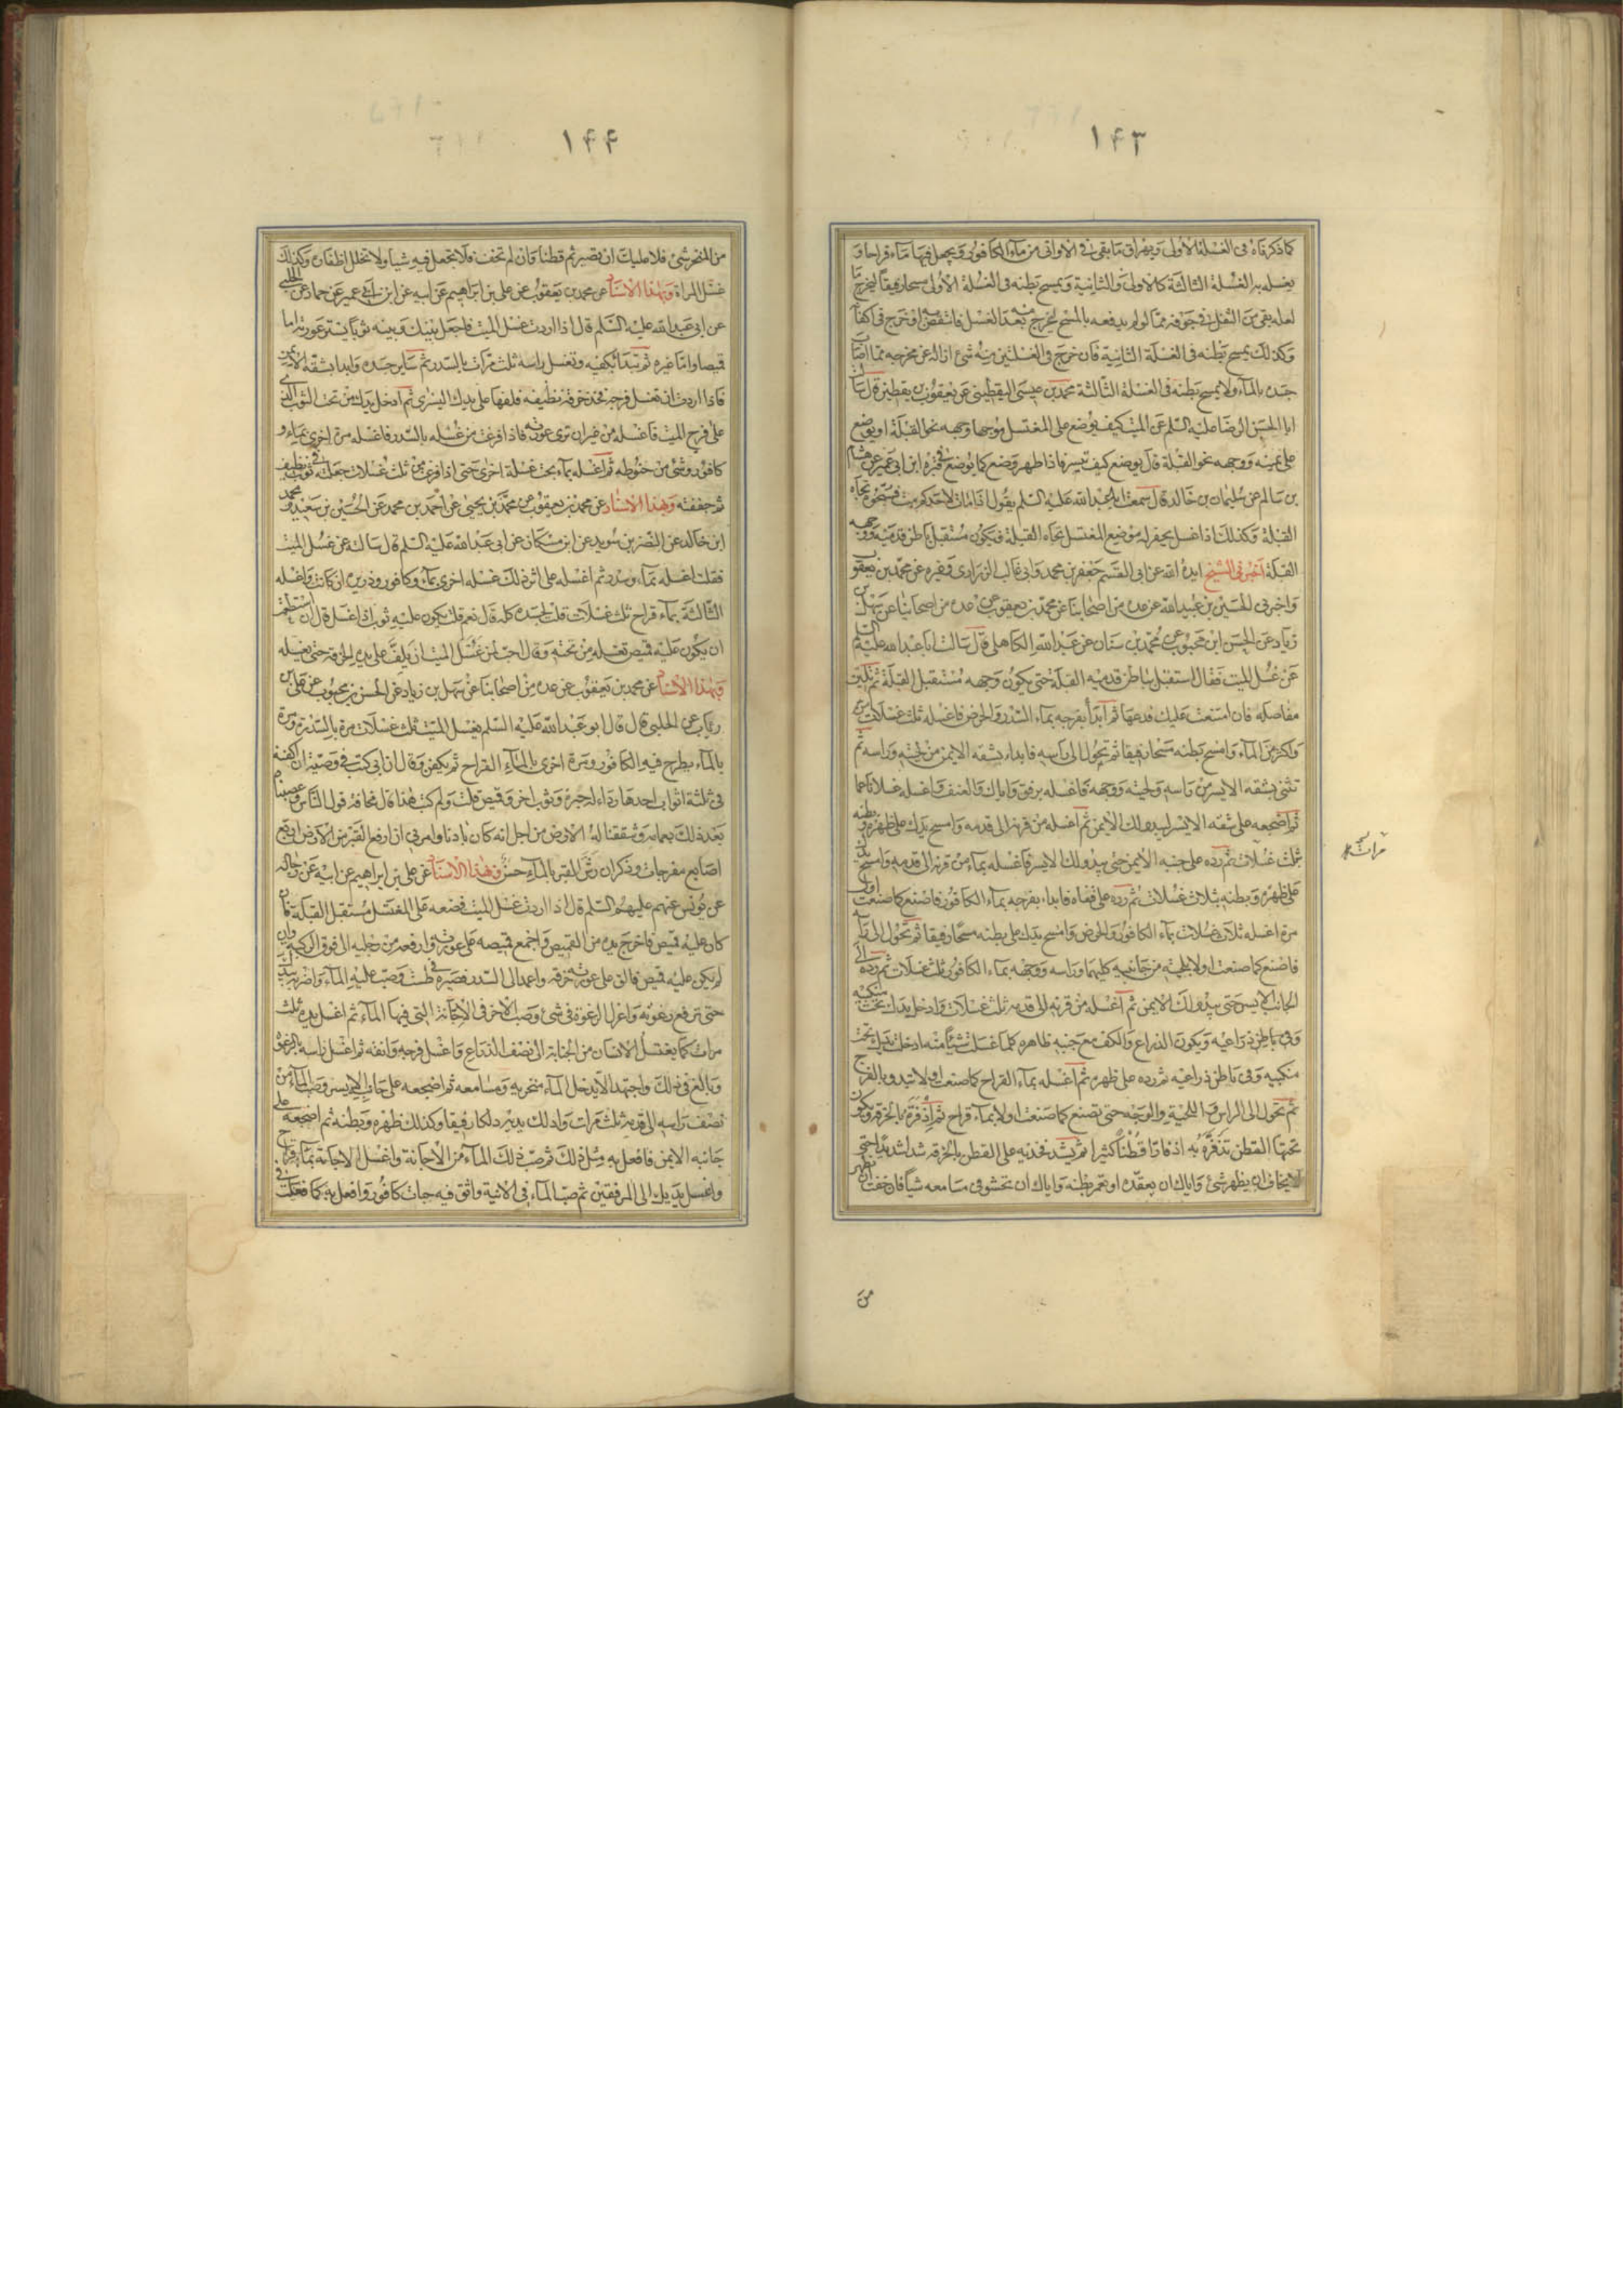 ١٤٣
كما ذكرناه فى الغسلة الأولى ويهراق ما بقى فى الاوانى من ماء الكافور ويجعل فيها ماء قراحا و
يغسله به الغسلة الثالثة كالاولى والثانية ويمسح بطنه فى الغسلة الأولى مسحا رفيقا ليخرج ما
لعله بقى من الثفل فى جوفه مما لو لم يدفعه بالمسح لخرج منه بعد الغسل فانتقض به او خرج فى اكفانه
وكذلك يمسح بطنه فى الغسلة الثانية فان خرج فى الغسلتين منه شئ ازاله عن مخرجه مما اصاب
جسده بالماء ولا يمسح بطنه فى الغسلة الثالثة محمد بن عيسى اليقطينى عن يعقوب بن يقطين قال سالت
ابا الحسن الرضا عليه السلم عن الميت كيف يوضع على المغتسل موجها وجهه نحو القبلة او يوضع
على يمينه ووجهه نحو القبلة قال يوضع كيف تيسر فاذا طهر وضع كما يوضع فى قبره ابن ابى عمير عن هشام
بن سالم عن سليمان بن خالد قال سمعت ابا عبد الله عليه السلم يقول اذا مات لاحدكم ميت فسجوه تجاه
القبلة وكذلك اذا غسل يحفر له موضع المغتسل تجاه القبلة فيكون مستقبل باطن قدميه ووجهه
القبلة اخبرنى الشيخ ايده الله عن ابى القسم جعفر بن محمد وابى غالب الزرارى وغيره عن محمد بن يعقوب
واخبرنى الحسين بن عبيد الله عن عدة من اصحابنا عن محمد بن يعقوب عن عدة من اصحابنا عن سهل بن
زياد عن الحسن ابن محبوب عن محمد بن سنان عن عبد الله الكاهلى قال سالت ابا عبد الله عليه السلم
عن غسل الميت فقال استقبل بباطن قدميه القبلة حتى يكون وجهه مستقبل القبلة ثم تلين
مفاصله فان امتنعت عليك فدعها ثم ابدأ بفرجه بماء السدر والحرض فاغسله ثلث غسلات
واكثر من الماء وامسح بطنه مسحا رفيقا ثم تحول الى راسه فابداء بشقه الايمن من لحيته وراسه ثم
تثنى بشقه الايسر من راسه ولحيته ووجهه فاغسله برفق واياك والعنف واغسله غسلا ناعما
ثم اضجعه على شقه الايسر ليبدو لك الايمن ثم اغسله من قرنه الى قدمه وامسح يدك على ظهره وبطنه
بثلث غسلات ثم رده على جنبه الايمن حتى يبدو لك الايسر فاغسله بماء من قرنه الى قدمه وامسح يدك
على ظهره وبطنه بثلاث غسلات ثم رده على قفاه فابداء بفرجه بماء الكافور فاصنع كما صنعت اول
مرة اغسله ثلاث غسلات بماء الكافور والحرض وامسح يدك على بطنه مسحا رفيقا ثم تحول الى راسه
فاصنع كما صنعت اولا بلحيته من جانبيه كليهما وراسه ووجهه بماء الكافور ثلث غسلات ثم رده الى
الجانب الايسر حتى يبدو لك الايمن ثم اغسله من قرنه الى قدمه ثلث غسلات وادخل يدك تحت منكبيه
وفى باطن ذراعيه ويكون الذراع والكف مع جنبه ظاهره كلما غسلت شيئا منه ادخلت يدك تحت
منكبيه وفى باطن ذراعيه ثم رده على ظهره ثم اغسله بماء القراح كما صنعت اولا تبدو بالفرج
ثم تحول الى الراس واللحية والوجه حتى تصنع كما صنعت اولا بماء قراح ثم اذفره بالخرقة ويكون
تحتها القطن تذفره به اذفارا قطنا كثيرا ثم يشد فخذيه على القطن بالخرقة شدا شديدا حتى
لا يخاف ان يظهر شئ واياك ان يعقده او تغمز بطنه واياك ان تحشو فى مسامعه شيا فان خفت ان يظهر
من
١٤٤
من المنخر شئ فلا عليك ان تصير ثم قطنا فان لم تخف فلا تجعل فيه شيا ولا تخلل اظفاره وكذلك
غسل المراة وبهذا الاسناد عن محمد بن يعقوب عن على بن ابراهيم عن ابيه عن ابن ابى عمير عن حماد عن الحلبى
عن ابى عبد الله عليه السلم قال اذا اردت غسل الميت فاجعل بينك وبينه ثوبا يستر عورته اما
قميصا واما غيره ثم تبدأ بكفيه وتغسل راسه ثلث مرات بالسدر ثم ساير جسده وابدا بشقه الايمن
فاذا اردت ان تغسل فرجه فخذ خرقة نظيفة فلفها على يدك اليسرى ثم ادخل يدك من تحت الثوب الذى
على فرج الميت فاغسله من غير ان ترى عورته فاذا فرغت من غسله بالسدر فاغسله مرة اخرى بماء و
كافور وشئ من حنوطه ثم اغسله بماء بحت غسلة اخرى حتى اذا فرغت من ثلث غسلات جعلته فى ثوب نظيف
ثم جففته وبهذا الاسناد عن محمد بن يعقوب عن محمد بن يحيى عن احمد بن محمد عن الحسين بن سعيد و محمد
ابن خالد عن النضر بن سويد عن ابن مسكان عن ابى عبد الله عليه السلم قال سالته عن غسل الميت
فقال اغسله بماء وسدر ثم اغسله على اثر ذلك غسله اخرى بماء وكافور وذريره ان كانت واغسله
الثالثة بماء قراح ثلث غسلات قلت لجسده كله قال نعم قلت يكون عليه ثوب اذا غسل قال ان استطعت
ان يكون عليه قميص تغسله من تحته وقال احب لمن غسل الميت ان يلف على يده الخرقة حتى يغسله
وبهذا الاسناد عن محمد بن يعقوب عن عدة من اصحابنا عن سهل بن زياد عن الحسن بن محبوب عن على بن
رئاب عن الحلبى قال قال ابو عبد الله عليه السلم يغسل الميت ثلث غسلات مرة بالسدر ومرة
بالماء يطرح فيه الكافور ومرة اخرى بالماء القراح ثم يكفن وقال ان ابى كتب فى وصيته ان اكفنه
فى ثلثة اثواب احدها رداء له حبرة وثوب اخر وقميص قلت ولم كتب هذا قال مخافة قول الناس وعصبناه
بعد ذلك بعمامة وشققنا له الارض من اجل انه كان بادنا وامرنى ان ارفع القبر من الارض اربع
اصابع مفرجات وذكر ان رش القبر بالماء حسن وبهذا الاسناد عن على بن ابراهيم عن ابيه عن رجاله
عن يونس عنهم عليهم السلم قال اذا اردت غسل الميت فضعه على المغتسل مستقبل القبلة فان
كان عليه قميص فاخرج يده من القميص واجمع قميصه على عورته وارفعه من رجليه الى فوق الركبة وان
لم يكن عليه قميص فالق على عورته خرقة واعمد الى السدر فصيره فى طست وصب عليه الماء واضربه بيدك
حتى ترفع رغوته واعزل الرغوة فى شئ وصب الاخر فى الاجانة التى فيها الماء ثم اغسل يديه ثلث
مرات كما يغتسل الانسان من الجنابة الى نصف الذراع واغسل فرجه وانقه ثم اغسل راسه بالرغوة
وبالغ فى ذلك واجتهد الا يدخل الماء منخريه ومسامعه ثم اضجعه على جانبه الايسر وصب الماء من
نصف راسه الى قدميه ثلث مرات وادلك بدنه دلكا رفيقا وكذلك ظهره وبطنه ثم اضجعه على
جانبه الايمن فافعل به مثل ذلك ثم صب ذلك الماء من الاجانة واغسل الاجانة بماء قراح
واغسل يديك الى المرفقين ثم صب الماء فى الانية والق فيه حبات كافور وافعل به كما فعلت فى